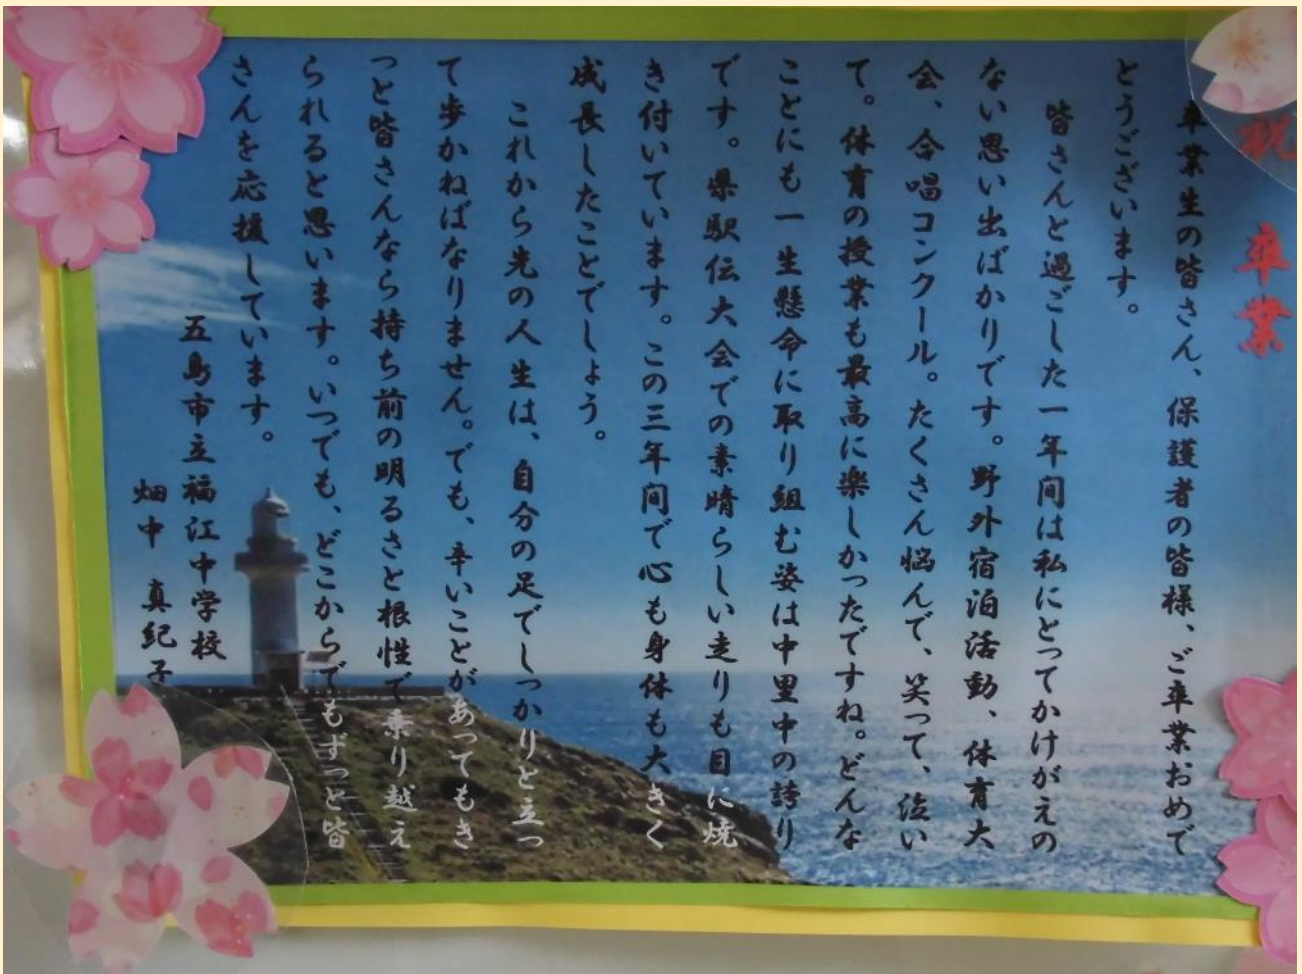 祝 卒業
卒業生の皆さん、保護者の皆様、ご卒業おめで
とうございます。
皆さんと過ごした一年間は私にとってかけがえの
ない思い出ばかりです。野外宿泊活動、体育大
会、合唱コンクール。たくさん悩んで、笑って、泣い
て。体育の授業も最高に楽しかったですね。どんな
ことにも一生懸命に取り組む姿は中里中の誇り
です。県駅伝大会での素晴らしい走りも目に焼
き付いています。この三年間で心も身体も大きく
成長したことでしょう。
これから先の人生は、自分の足でしっかりと立っ
て歩かねばなりません。でも、辛いことがあってもき
っと皆さんなら持ち前の明るさと根性で乗り越え
られると思います。いつでも、どこからでもずっと皆
さんを応援しています。
五島市立福江中学校
畑中 真紀子